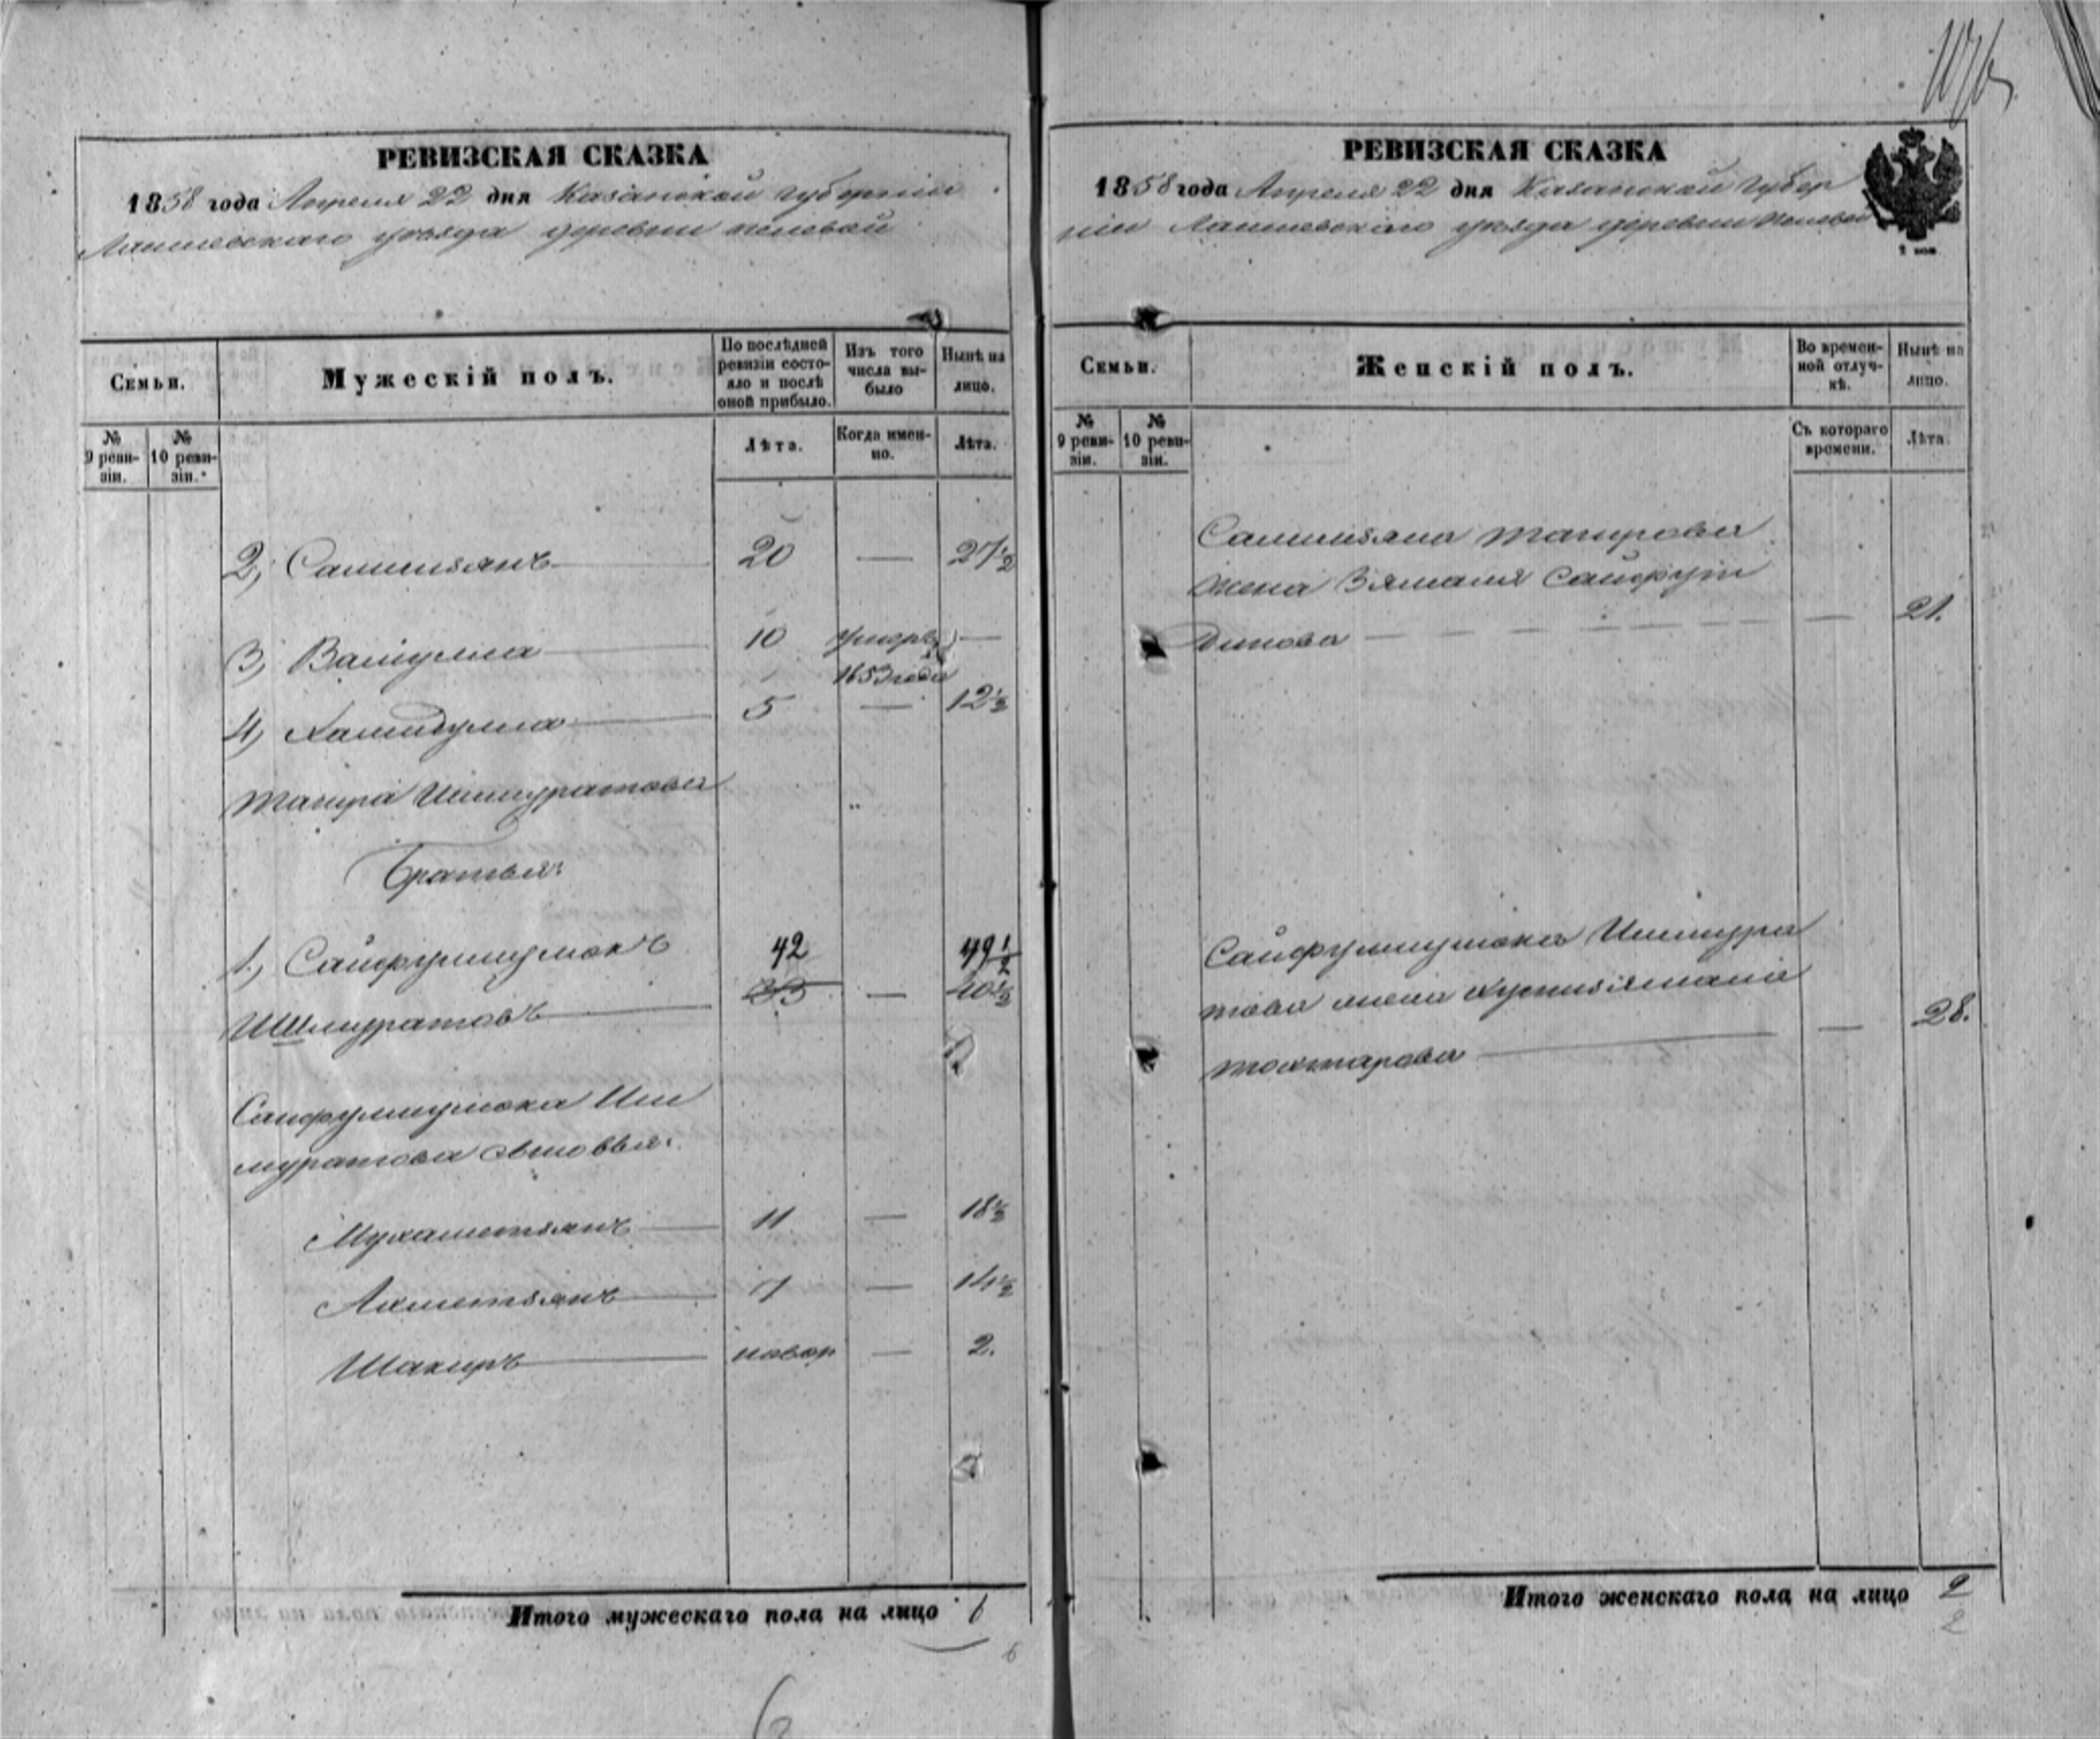 РЕВИЗСКАЯ СКАЗКА
1858 года Апреля 22 дня Казанской губернии
Лаишевскаго уезда деревни
Семьи.
Мужескій полъ.
По послѣдней ревизіи состояло и послѣ оной прибыло.
Изъ того числа выбыло
Нынѣ на лицо.
№ 9 ревизіи.
№ 10 ревизіи.
Лѣта.
Когда именно.
Лѣта.
2, 20 — 27½
3, Валиулла 10 умеръ —
1853 года
4, Хамидулла 5 — 12½
Тагира Ишмуратова
Братья:
1, Сайфулмулюкъ 42 49½
Ишмуратовъ 33 — 40½
Сайфулмулюка Иш
муратова сыновья:
Мухаметзянъ 11 — 18½
Ахметзянъ 7 — 14½
Шакиръ новор — 2.
Итого мужескаго пола на лицо 6
6
6
РЕВИЗСКАЯ СКАЗКА
1858 года Апреля 22 дня Казанской губер
ніи Лаишевскаго уезда деревни
Семьи.
Женскій полъ.
Во временной отлучкѣ.
Нынѣ на лицо.
№ 9 ревизіи.
№ 10 ревизіи.
Съ котораго времени.
Лѣта.
Тагирова
жена Зямалія Сайфут
динова — 21.
Сайфулмулюка Ишмура
това жена
Тохтарова — 28.
Итого женскаго пола на лицо 2
2